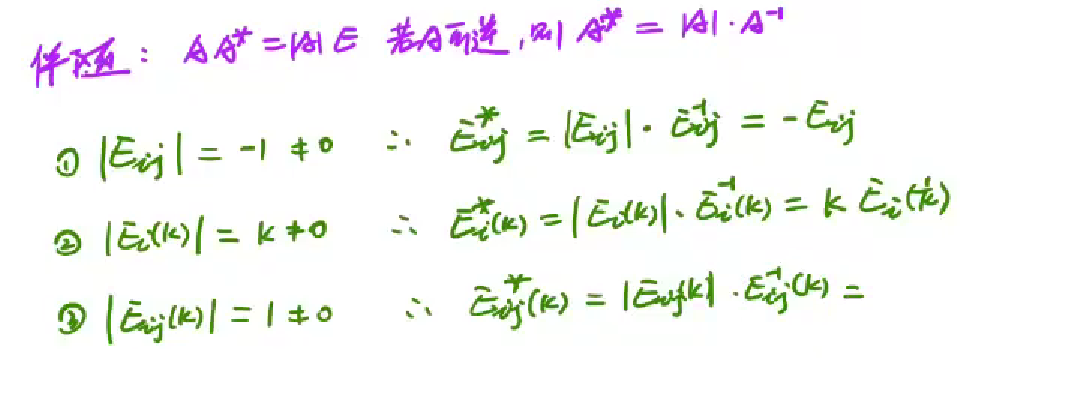 伴随：AA* = |A|E 若A可逆，则 A* = |A|·A⁻¹
① |Eij| = -1 ≠ 0 ∴ Eij* = |Eij|·Eij⁻¹ = -Eij
② |Ei(k)| = k ≠ 0 ∴ Ei*(k) = |Ei(k)|·Ei⁻¹(k) = k Ei(1/k)
③ |Eij(k)| = 1 ≠ 0 ∴ Eij*(k) = |Eij(k)|·Eij⁻¹(k) =